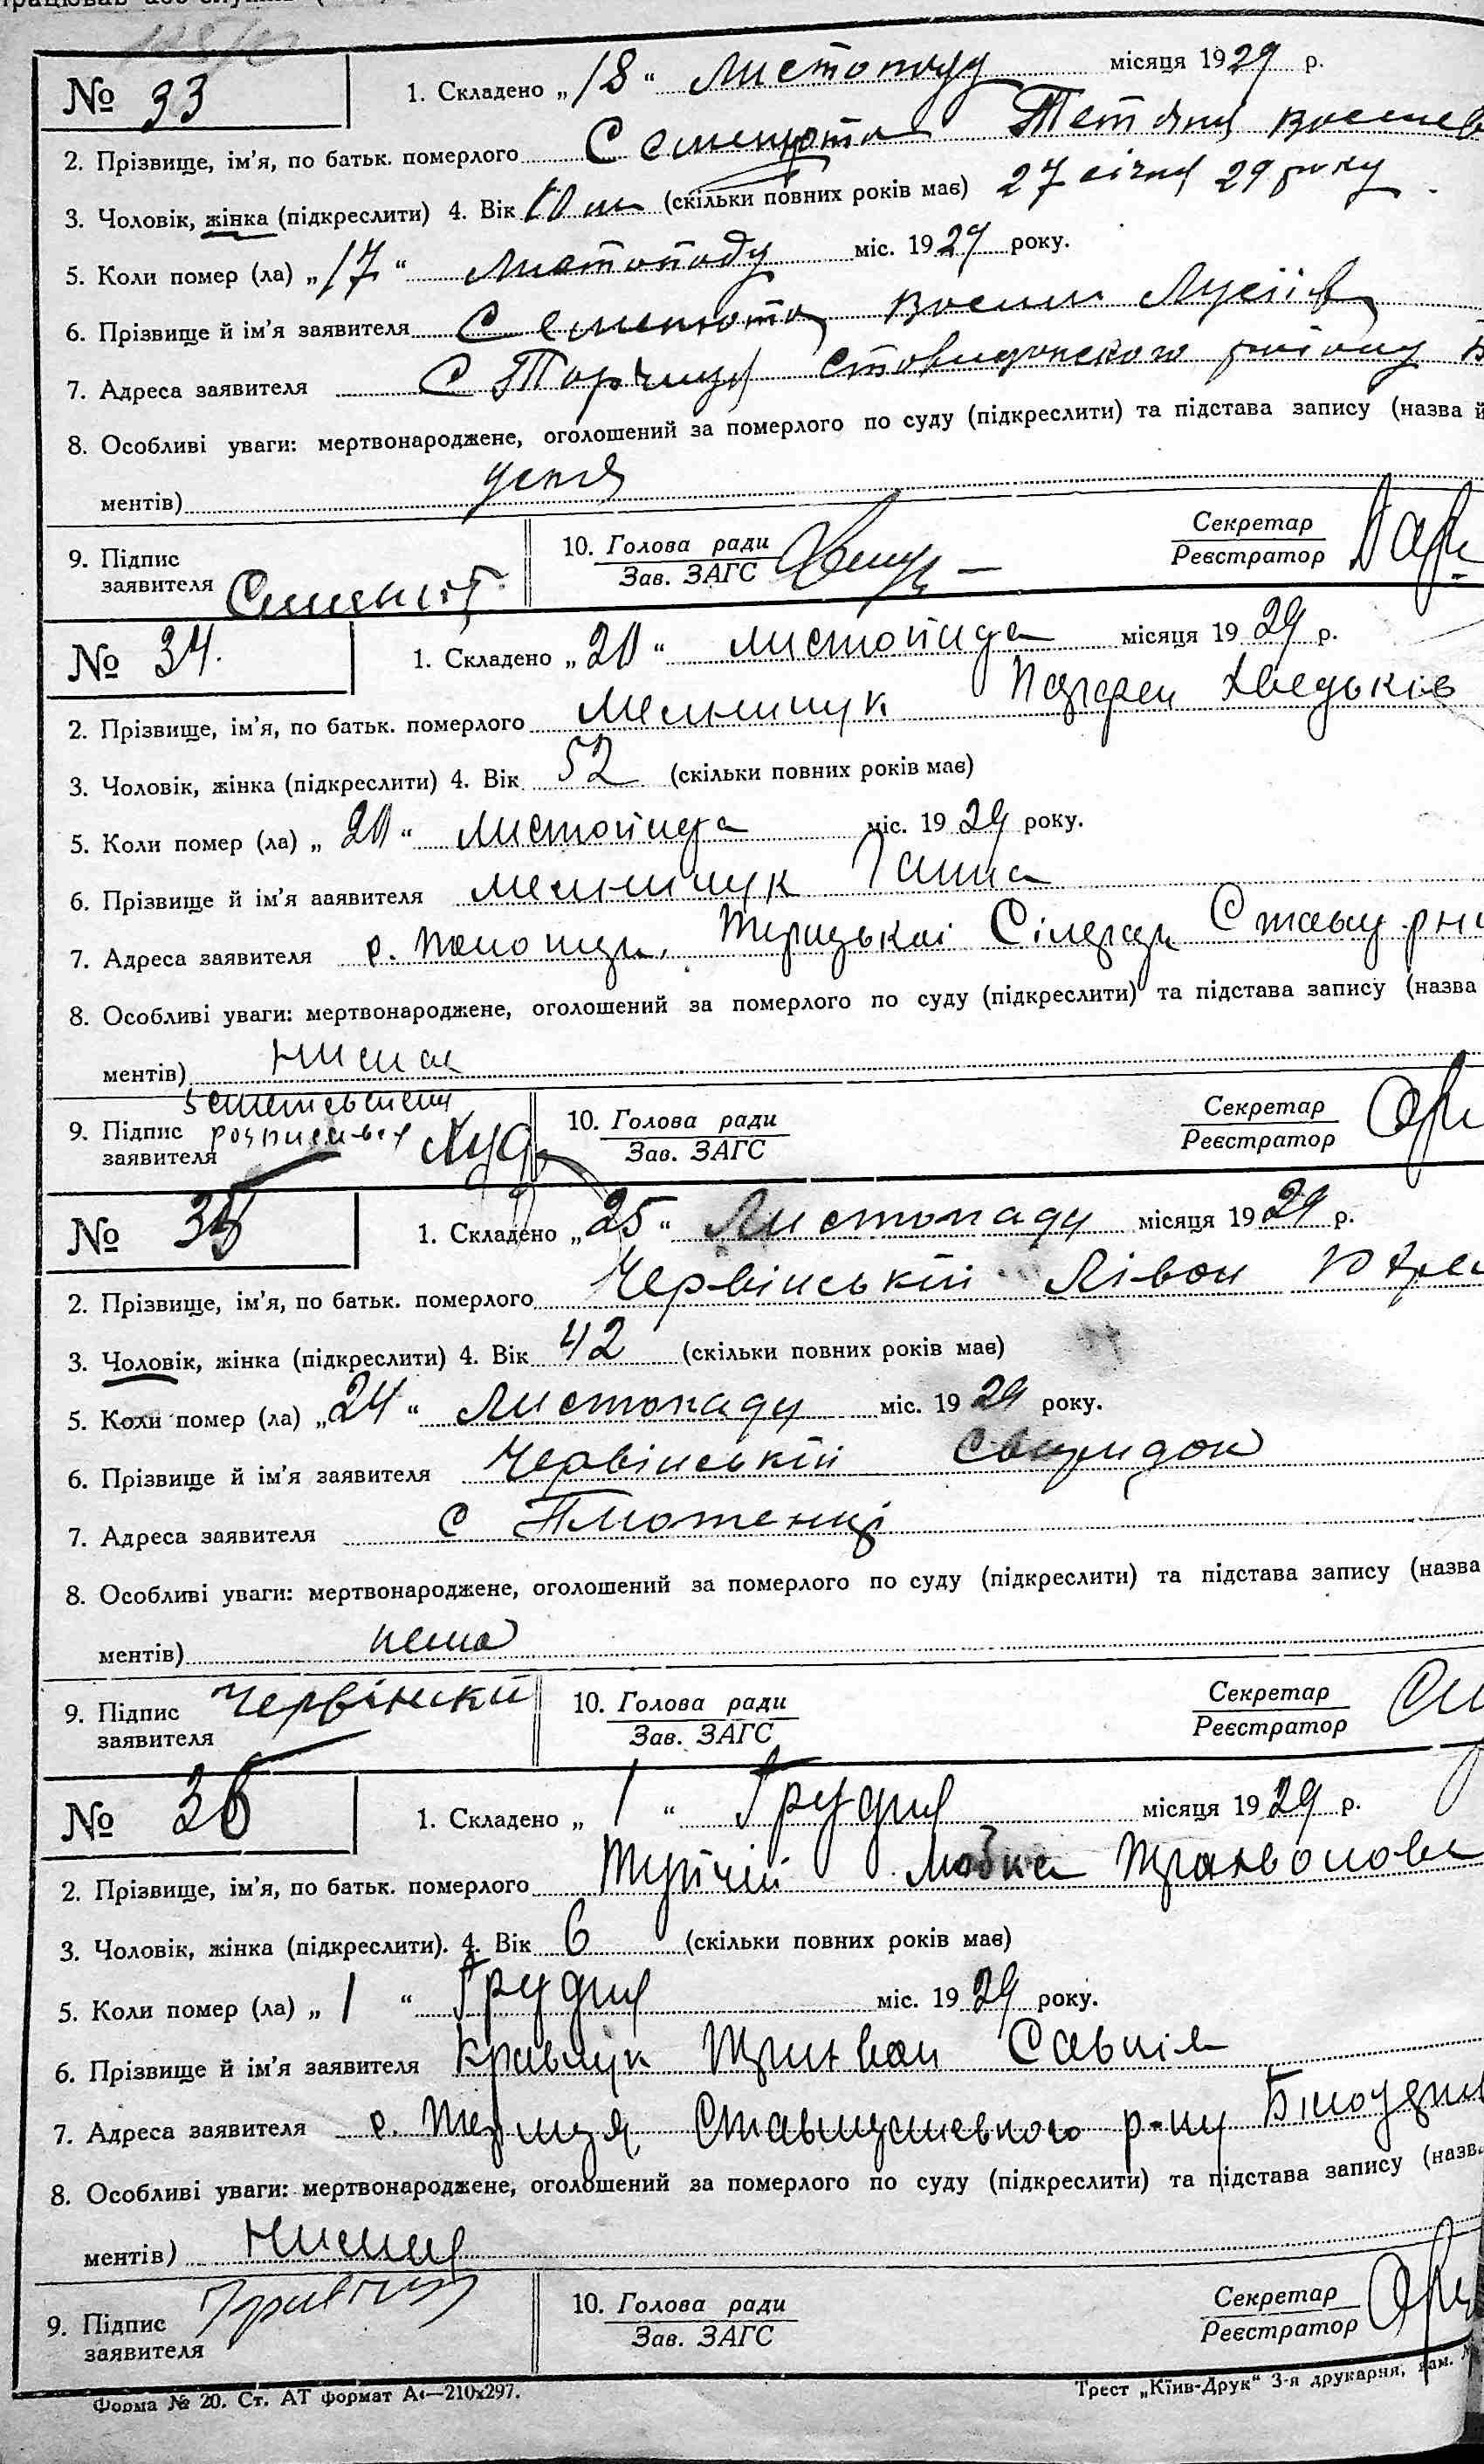 № 33 1. Складено „18“ Листопаду місяця 1929 р.
2. Прізвище, ім’я, по батьк. померлого Семенюта Тетяна
3. Чоловік, жінка (підкреслити) 4. Вік 10 м (скільки повних років має) 27 січня 29 року
5. Коли помер (ла) „17“ Листопаду міс. 1929 року.
6. Прізвище й ім’я заявителя Семенюта
7. Адреса заявителя С Торчиця
8. Особливі уваги: мертвонароджене, оголошений за померлого по суду (підкреслити) та підстава запису (назва й
ментів) усня
9. Підпис заявителя 10. Голова ради Зав. ЗАГС Секретар Реєстратор
№ 34. 1. Складено „20“ листопада місяця 1929 р.
2. Прізвище, ім’я, по батьк. померлого Мельничук Хведьків
3. Чоловік, жінка (підкреслити) 4. Вік 52 (скільки повних років має)
5. Коли помер (ла) „20“ листопада міс. 1929 року.
6. Прізвище й ім’я заявителя Мельничук Ганна
7. Адреса заявителя с.
8. Особливі уваги: мертвонароджене, оголошений за померлого по суду (підкреслити) та підстава запису (назва
ментів) нима
9. Підпис заявителя розписався 10. Голова ради Зав. ЗАГС Секретар Реєстратор
№ 35 1. Складено „25“ Листопаду місяця 1929 р.
2. Прізвище, ім’я, по батьк. померлого Червінській Лівон
3. Чоловік, жінка (підкреслити) 4. Вік 42 (скільки повних років має)
5. Коли помер (ла) „24“ Листопаду міс. 1929 року.
6. Прізвище й ім’я заявителя Червінській Свиридон
7. Адреса заявителя с
8. Особливі уваги: мертвонароджене, оголошений за померлого по суду (підкреслити) та підстава запису (назва
ментів) нема
9. Підпис заявителя Червінский 10. Голова ради Зав. ЗАГС Секретар Реєстратор
№ 36 1. Складено „1“ Грудня місяця 1929 р.
2. Прізвище, ім’я, по батьк. померлого
3. Чоловік, жінка (підкреслити). 4. Вік 6 (скільки повних років має)
5. Коли помер (ла) „1“ Грудня міс. 1929 року.
6. Прізвище й ім’я заявителя Кравчук
7. Адреса заявителя с.
8. Особливі уваги: мертвонароджене, оголошений за померлого по суду (підкреслити) та підстава запису (назва
ментів)
9. Підпис заявителя 10. Голова ради Зав. ЗАГС Секретар Реєстратор
Форма № 20. Ст. АТ формат А4—210х297. Трест „Київ-Друк“ 3-я друкарня, зам. №